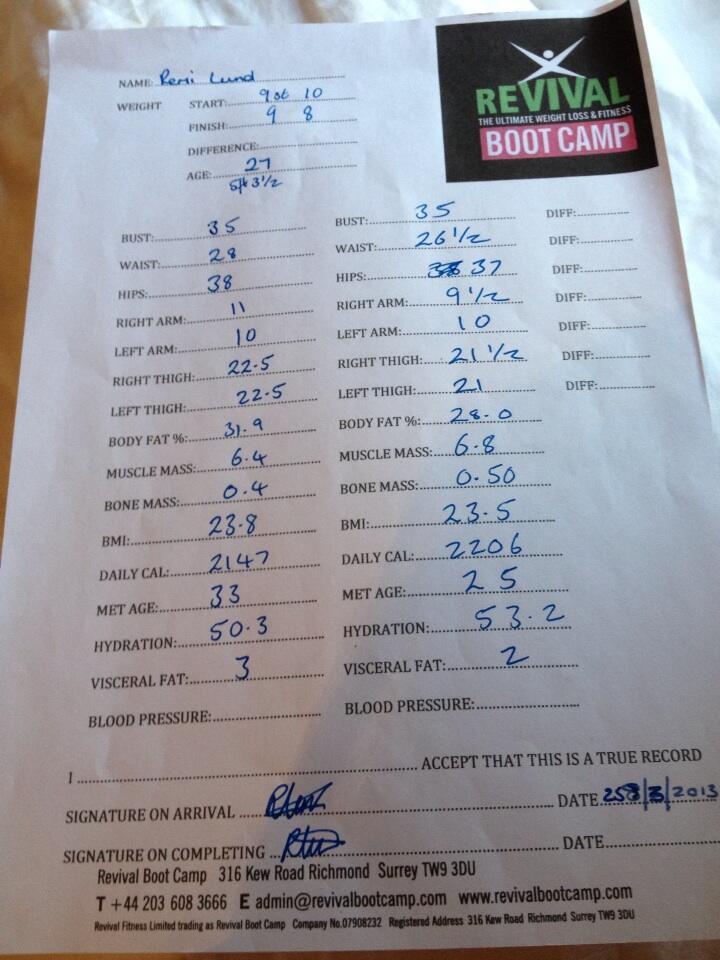 NAME: Remi Lund
REVIVAL
THE ULTIMATE WEIGHT LOSS & FITNESS
BOOT CAMP
WEIGHT START: 9st 10
FINISH: 9 8
DIFFERENCE:
AGE: 27
5ft 3 1/2
BUST: 35 BUST: 35 DIFF:
WAIST: 28 WAIST: 26 1/2 DIFF:
HIPS: 38 HIPS: 37 DIFF:
RIGHT ARM: 11 RIGHT ARM: 9 1/2 DIFF:
LEFT ARM: 10 LEFT ARM: 10 DIFF:
RIGHT THIGH: 22.5 RIGHT THIGH: 21 1/2 DIFF:
LEFT THIGH: 22.5 LEFT THIGH: 21 DIFF:
BODY FAT %: 31.9 BODY FAT %: 28.0
MUSCLE MASS: 6.4 MUSCLE MASS: 6.8
BONE MASS: 0.4 BONE MASS: 0.50
BMI: 23.8 BMI: 23.5
DAILY CAL: 2147 DAILY CAL: 2206
MET AGE: 33 MET AGE: 25
HYDRATION: 50.3 HYDRATION: 53.2
VISCERAL FAT: 3 VISCERAL FAT: 2
BLOOD PRESSURE: BLOOD PRESSURE:
I ACCEPT THAT THIS IS A TRUE RECORD
SIGNATURE ON ARRIVAL DATE /2013
SIGNATURE ON COMPLETING DATE
Revival Boot Camp 316 Kew Road Richmond Surrey TW9 3DU
T +44 203 608 3666 E admin@revivalbootcamp.com www.revivalbootcamp.com
Revival Fitness Limited trading as Revival Boot Camp Company No.07908232 Registered Address 316 Kew Road Richmond Surrey TW9 3DU